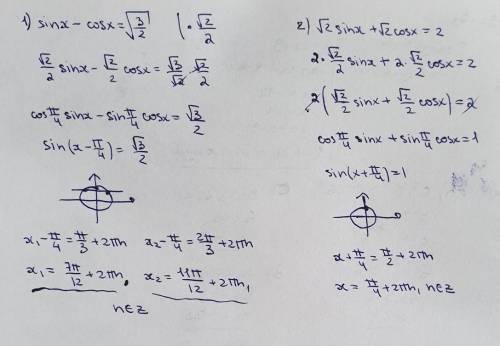 1) sinx - cosx = √(3/2) | · √2/2
√2/2 sinx - √2/2 cosx = √3/√2 · √2/2
cos π/4 sinx - sin π/4 cosx = √3/2
sin(x - π/4) = √3/2
x₁ - π/4 = π/3 + 2πn x₂ - π/4 = 2π/3 + 2πn
x₁ = 7π/12 + 2πn, x₂ = 11π/12 + 2πn,
n∈z
2) √2 sinx + √2 cosx = 2
2 · √2/2 sinx + 2 · √2/2 cosx = 2
2(√2/2 sinx + √2/2 cosx) = 2
cos π/4 sinx + sin π/4 cosx = 1
sin(x + π/4) = 1
x + π/4 = π/2 + 2πn
x = π/4 + 2πn, n∈z